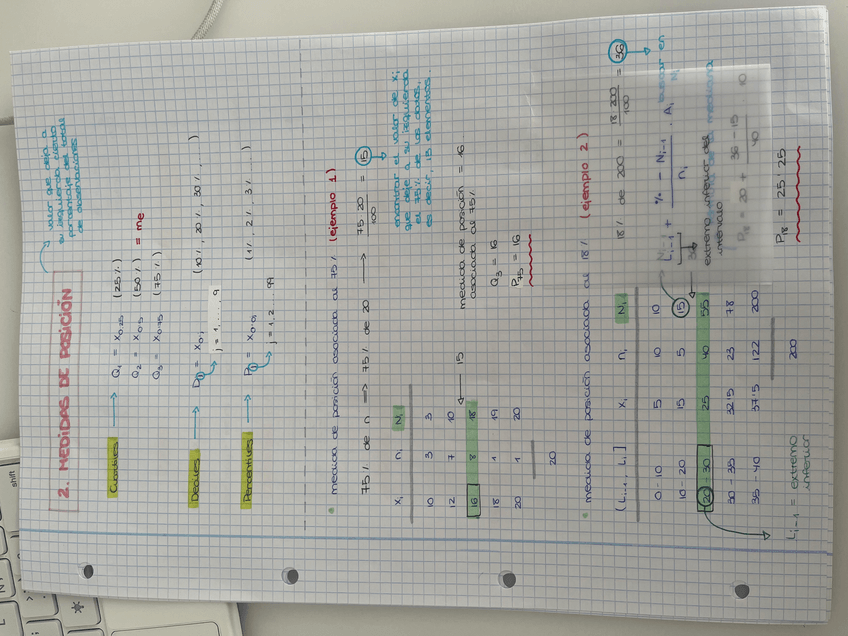 2. MEDIDAS DE POSICIÓN
valor que deja a
su izquierda cierto
porcentaje del total
de observaciones
Cuartiles
Q₁ = x₀.₂₅ (25%)
Q₂ = x₀.₅ (50%) = me
Q₃ = x₀.₇₅ (75%)
Deciles
= x₀.ⱼ (10%, 20%, 30%, ...)
j = 1, ... 9
Percentiles
= x₀.₀ⱼ (1%, 2%, 3%, ...)
j = 1, 2 ... 99
• medida de posición asociada al 75% (ejemplo 1)
75% de n => 75% de 20 → 75·20/100 = 15
encontrar el valor de xᵢ
que deje a su izquierda
el 75% de los datos,
es decir, 15 elementos.
xᵢ nᵢ Nᵢ
10 3 3
12 7 10
16 8 18 ← 15
18 1 19
20 1 20
20
medida de posición = 16
asociada al 75%
Q₃ = 16
P₇₅ = 16
• medida de posición asociada al 18% (ejemplo 2)
18% de 200 = 18·200/100 = 36
(Lᵢ₋₁ - Lᵢ] xᵢ nᵢ Nᵢ
0-10 5 10 10
10-20 15 5 15
20-30 25 40 55
30-35 32'5 23 78
35-40 37'5 122 200
200
Lᵢ₋₁ = extremo
inferior
Lᵢ₋₁ + % - Nᵢ₋₁ / nᵢ · Aᵢ
extremo inferior del
intervalo
P₁₈ = 20 + 36 - 15 / 40 10
P₁₈ = 25'25